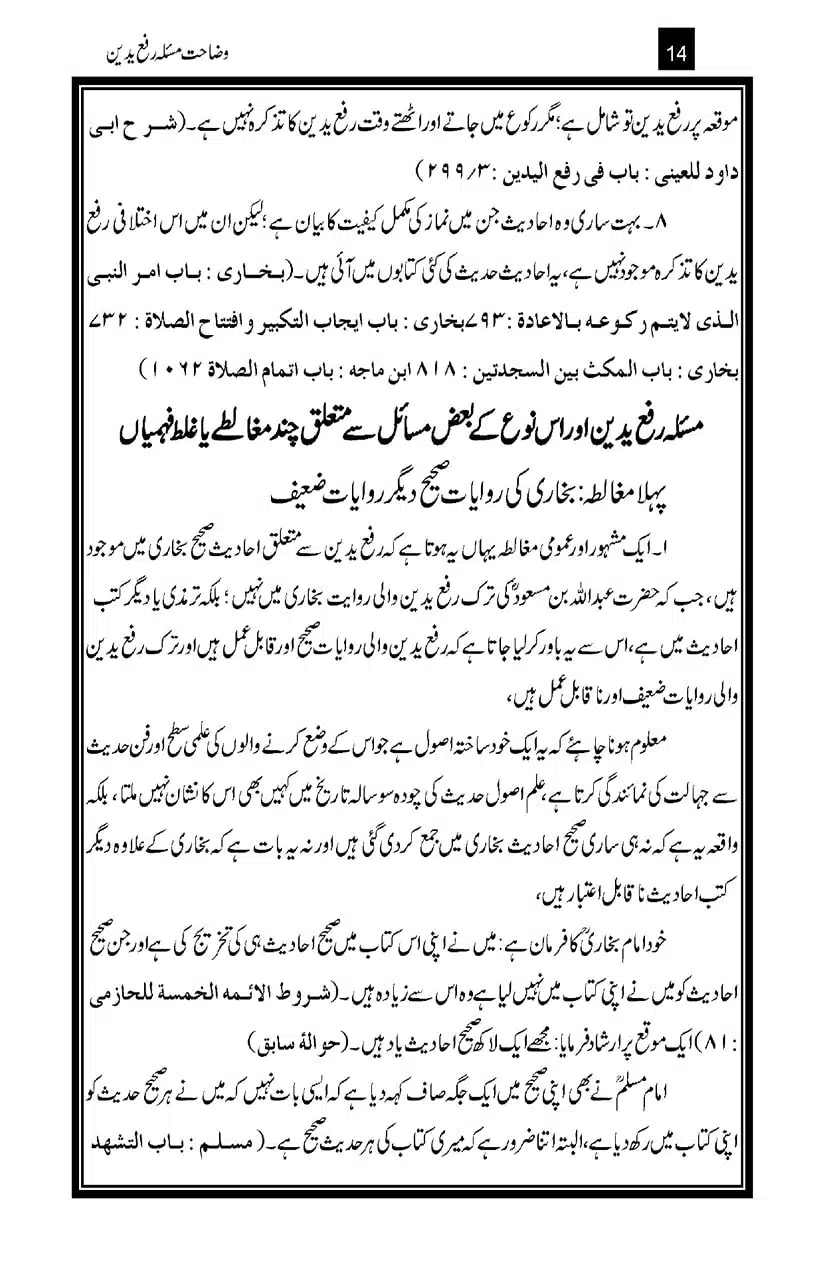 14
وضاحت مسئلہ رفع یدین
موقعہ پر رفع یدین تو شامل ہے؛ مگر رکوع میں جاتے اور اٹھتے وقت رفع یدین کا تذکرہ نہیں ہے۔ (شرح ابی
داود للعینی : باب فی رفع الیدین : ۲۹۹/۳)
۸۔ بہت ساری وہ احادیث جن میں نماز کی مکمل کیفیت کا بیان ہے؛ لیکن ان میں اس اختلافی رفع
یدین کا تذکرہ موجود نہیں ہے، یہ احادیث حدیث کی کئی کتابوں میں آئی ہیں۔ (بخاری : باب امر النبی
الذی لایتم رکوعہ بالاعادۃ : ۷۹۳بخاری : باب ایجاب التکبیر و افتتاح الصلاۃ : ۷۳۲
بخاری : باب المکث بین السجدتین : ۸۱۸ ابن ماجہ : باب اتمام الصلاۃ ۱۰۶۲)
مسئلہ رفع یدین اور اس نوع کے بعض مسائل سے متعلق چند مغالطے یا غلط فہمیاں
پہلا مغالطہ: بخاری کی روایات صحیح دیگر روایات ضعیف
۱۔ ایک مشہور اور عمومی مغالطہ یہاں یہ ہوتا ہے کہ رفع یدین سے متعلق احادیث صحیح بخاری میں موجود
ہیں، جب کہ حضرت عبداللہ بن مسعودؓ کی ترک رفع یدین والی روایت بخاری میں نہیں؛ بلکہ ترمذی یا دیگر کتب
احادیث میں ہے، اس سے یہ باور کرلیا جاتا ہے کہ رفع یدین والی روایات صحیح اور قابل عمل ہیں اور ترک رفع یدین
والی روایات ضعیف اور ناقابل عمل ہیں،
معلوم ہونا چاہئے کہ یہ ایک خود ساختہ اصول ہے جو اس کے وضع کرنے والوں کی علمی سطح اور فن حدیث
سے جہالت کی نمائندگی کرتا ہے، علم اصول حدیث کی چودہ سو سالہ تاریخ میں کہیں بھی اس کا نشان نہیں ملتا، بلکہ
واقعہ یہ ہے کہ نہ ہی ساری صحیح احادیث بخاری میں جمع کردی گئی ہیں اور نہ یہ بات ہے کہ بخاری کے علاوہ دیگر
کتب احادیث ناقابل اعتبار ہیں،
خود امام بخاریؒ کا فرمان ہے: میں نے اپنی اس کتاب میں صحیح احادیث ہی کی تخریج کی ہے اور جن صحیح
احادیث کو میں نے اپنی کتاب میں نہیں لیا ہے وہ اس سے زیادہ ہیں۔ (شروط الائمہ الخمسۃ للحازمی
:۸۱) ایک موقع پر ارشاد فرمایا: مجھے ایک لاکھ صحیح احادیث یاد ہیں۔ (حوالۂ سابق)
امام مسلمؒ نے بھی اپنی صحیح میں ایک جگہ صاف کہہ دیا ہے کہ ایسی بات نہیں کہ میں نے ہر صحیح حدیث کو
اپنی کتاب میں رکھ دیا ہے، البتہ اتنا ضرور ہے کہ میری کتاب کی ہر حدیث صحیح ہے۔ (مسلم : باب التشهد